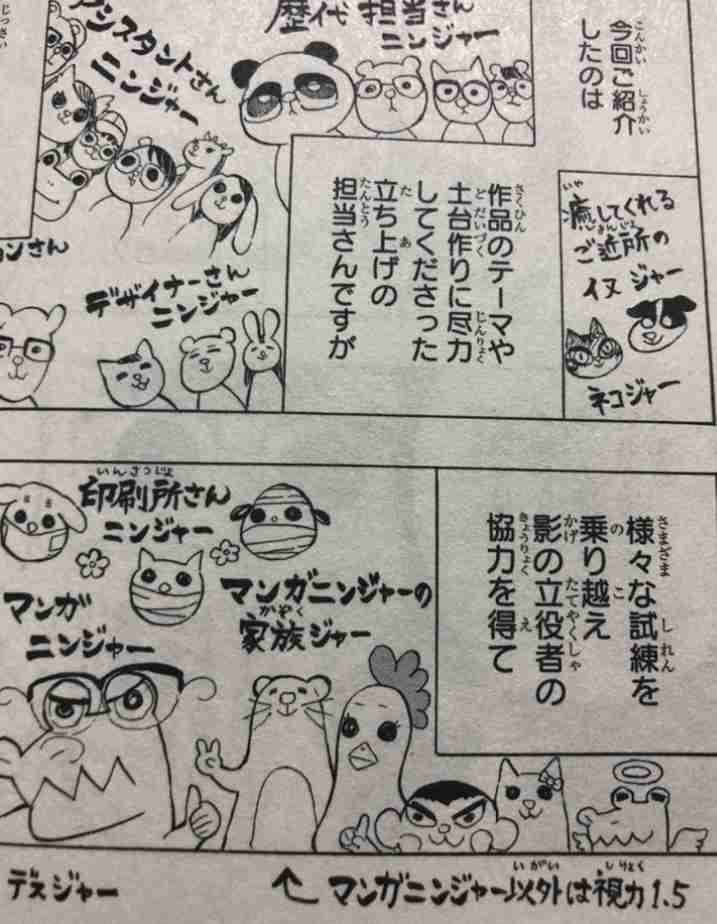 今回ご紹介
したのは
歴代担当さん
ニンジャー
アシスタントさん
ニンジャー
作品のテーマや
土台作りに尽力
してくださった
立ち上げの
担当さんですが
癒してくれる
ご近所の
イヌジャー
ネコジャー
デザイナーさん
ニンジャー
ンさん
様々な試練を
乗り越え
影の立役者の
協力を得て
印刷所さん
ニンジャー
マンガニンジャーの
家族ジャー
マンガ
ニンジャー
デスジャー
←マンガニンジャー以外は視力1.5